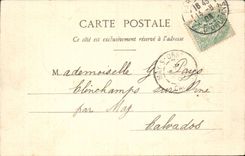 CARTE POSTALE
Ce côté est exclusivement réservé à l'adresse
Mademoiselle G. Pays
Clinchamps sur Orne
par May
Calvados